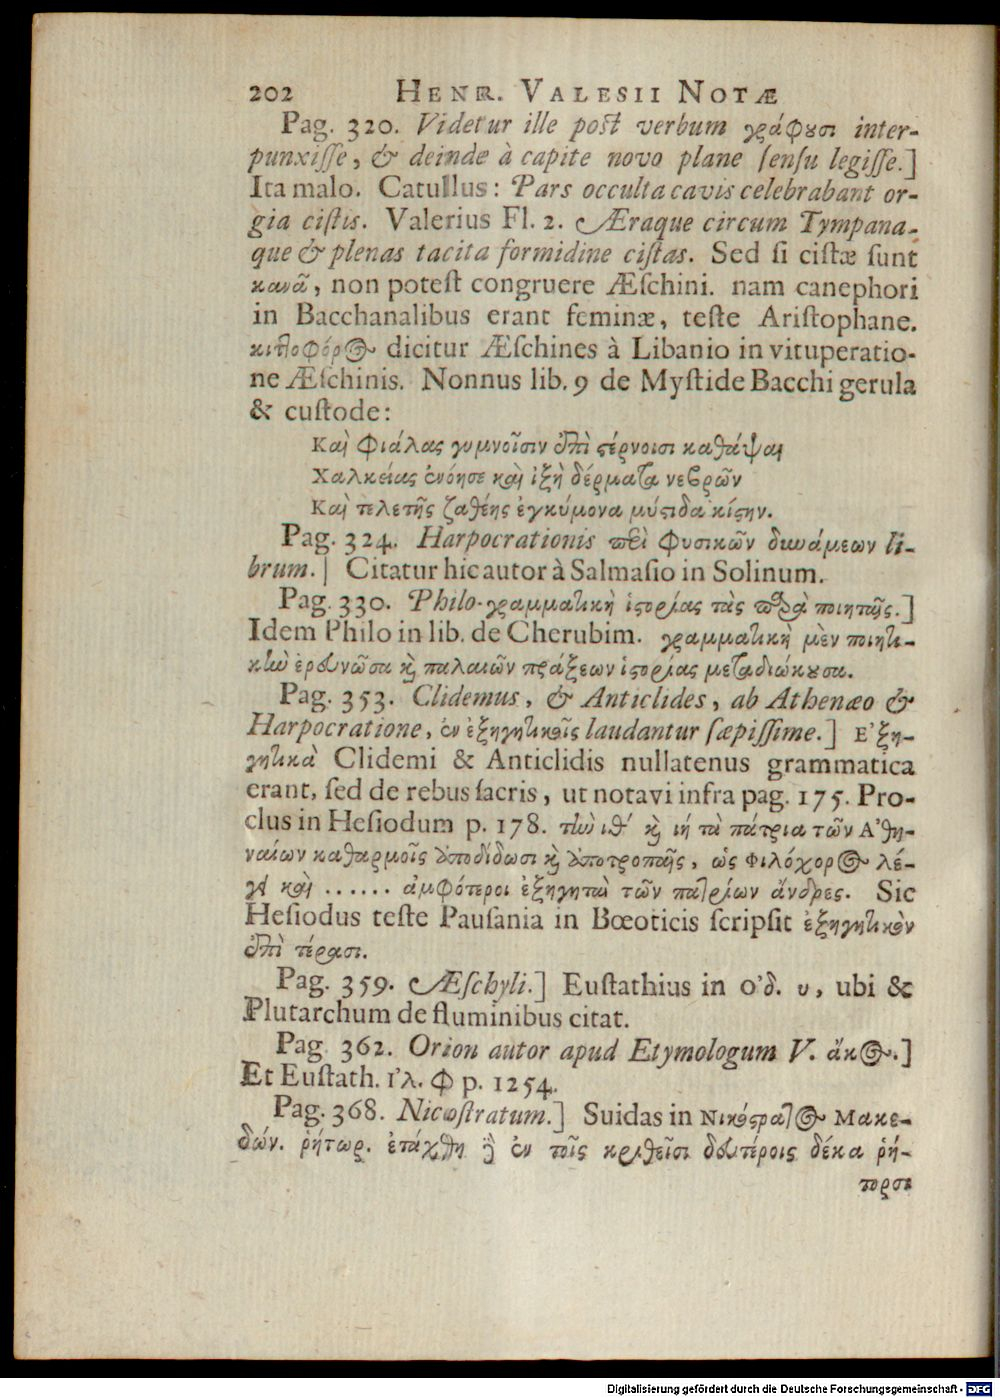 202 HENR. VALESII NOTÆ
Pag. 320. Videtur ille post verbum γράφουσι inter-
punxisse, & deinde à capite novo plane sensu legisse.]
Ita malo. Catullus: Pars occulta cavis celebrabant or-
gia cistis. Valerius Fl. 2. Æraque circum Tympana-
que & plenas tacita formidine cistas. Sed si cistæ sunt
κανᾶ, non potest congruere Æschini. nam canephori
in Bacchanalibus erant feminæ, teste Aristophane.
κιττοφόρος dicitur Æschines à Libanio in vituperatio-
ne Æschinis. Nonnus lib. 9 de Mystide Bacchi gerula
& custode:
Καὶ φιάλας γυμνοῖσιν ἐπὶ στέρνοισι καθάψαι
Χαλκείας ἐνόησε καὶ ἰξὴ δέρματα νεβρῶν
Καὶ τελετῆς ζαθέης ἐγκύμονα μύστιδα κίστην.
Pag. 324. Harpocrationis περὶ φυσικῶν δυνάμεων li-
brum.] Citatur hic autor à Salmasio in Solinum.
Pag. 330. Philo γραμματικὴ ἱστορίας τὰς παρὰ ποιηταῖς.]
Idem Philo in lib. de Cherubim. γραμματικὴ μὲν ποιητι-
κὴν ἐρευνῶσα καὶ παλαιῶν πράξεων ἱστορίας μεταδιώκουσα.
Pag. 353. Clidemus, & Anticlides, ab Athenæo &
Harpocratione, ἐν ἐξηγητικοῖς laudantur sæpissime.] Ἐξη-
γητικὰ Clidemi & Anticlidis nullatenus grammatica
erant, sed de rebus sacris, ut notavi infra pag. 175. Pro-
clus in Hesiodum p. 178. τὴν ιθ΄ καὶ ιή τὰ πάτρια τῶν Ἀθη-
ναίων καθαρμοῖς ἀποδίδωσι καὶ ἀποτροπαῖς, ὡς Φιλόχορος λέ-
γει καὶ ...... ἀμφότεροι ἐξηγηταὶ τῶν πατρίων ἄνδρες. Sic
Hesiodus teste Pausania in Bœoticis scripsit ἐξηγητικὸν
ἐπὶ τέρασι.
Pag. 359. Æschyli.] Eustathius in Ὀδ. υ, ubi &
Plutarchum de fluminibus citat.
Pag. 362. Orion autor apud Etymologum V. ἄκος.]
Et Eustath. Ἰλ. Φ p. 1254.
Pag. 368. Nicostratum.] Suidas in Νικόστρατος Μακε-
δών. ῥήτωρ. ἐτάχθη δὲ ἐν τοῖς κριθεῖσι δευτέροις δέκα ῥή-
τορσι
Digitalisierung gefördert durch die Deutsche Forschungsgemeinschaft - DFG